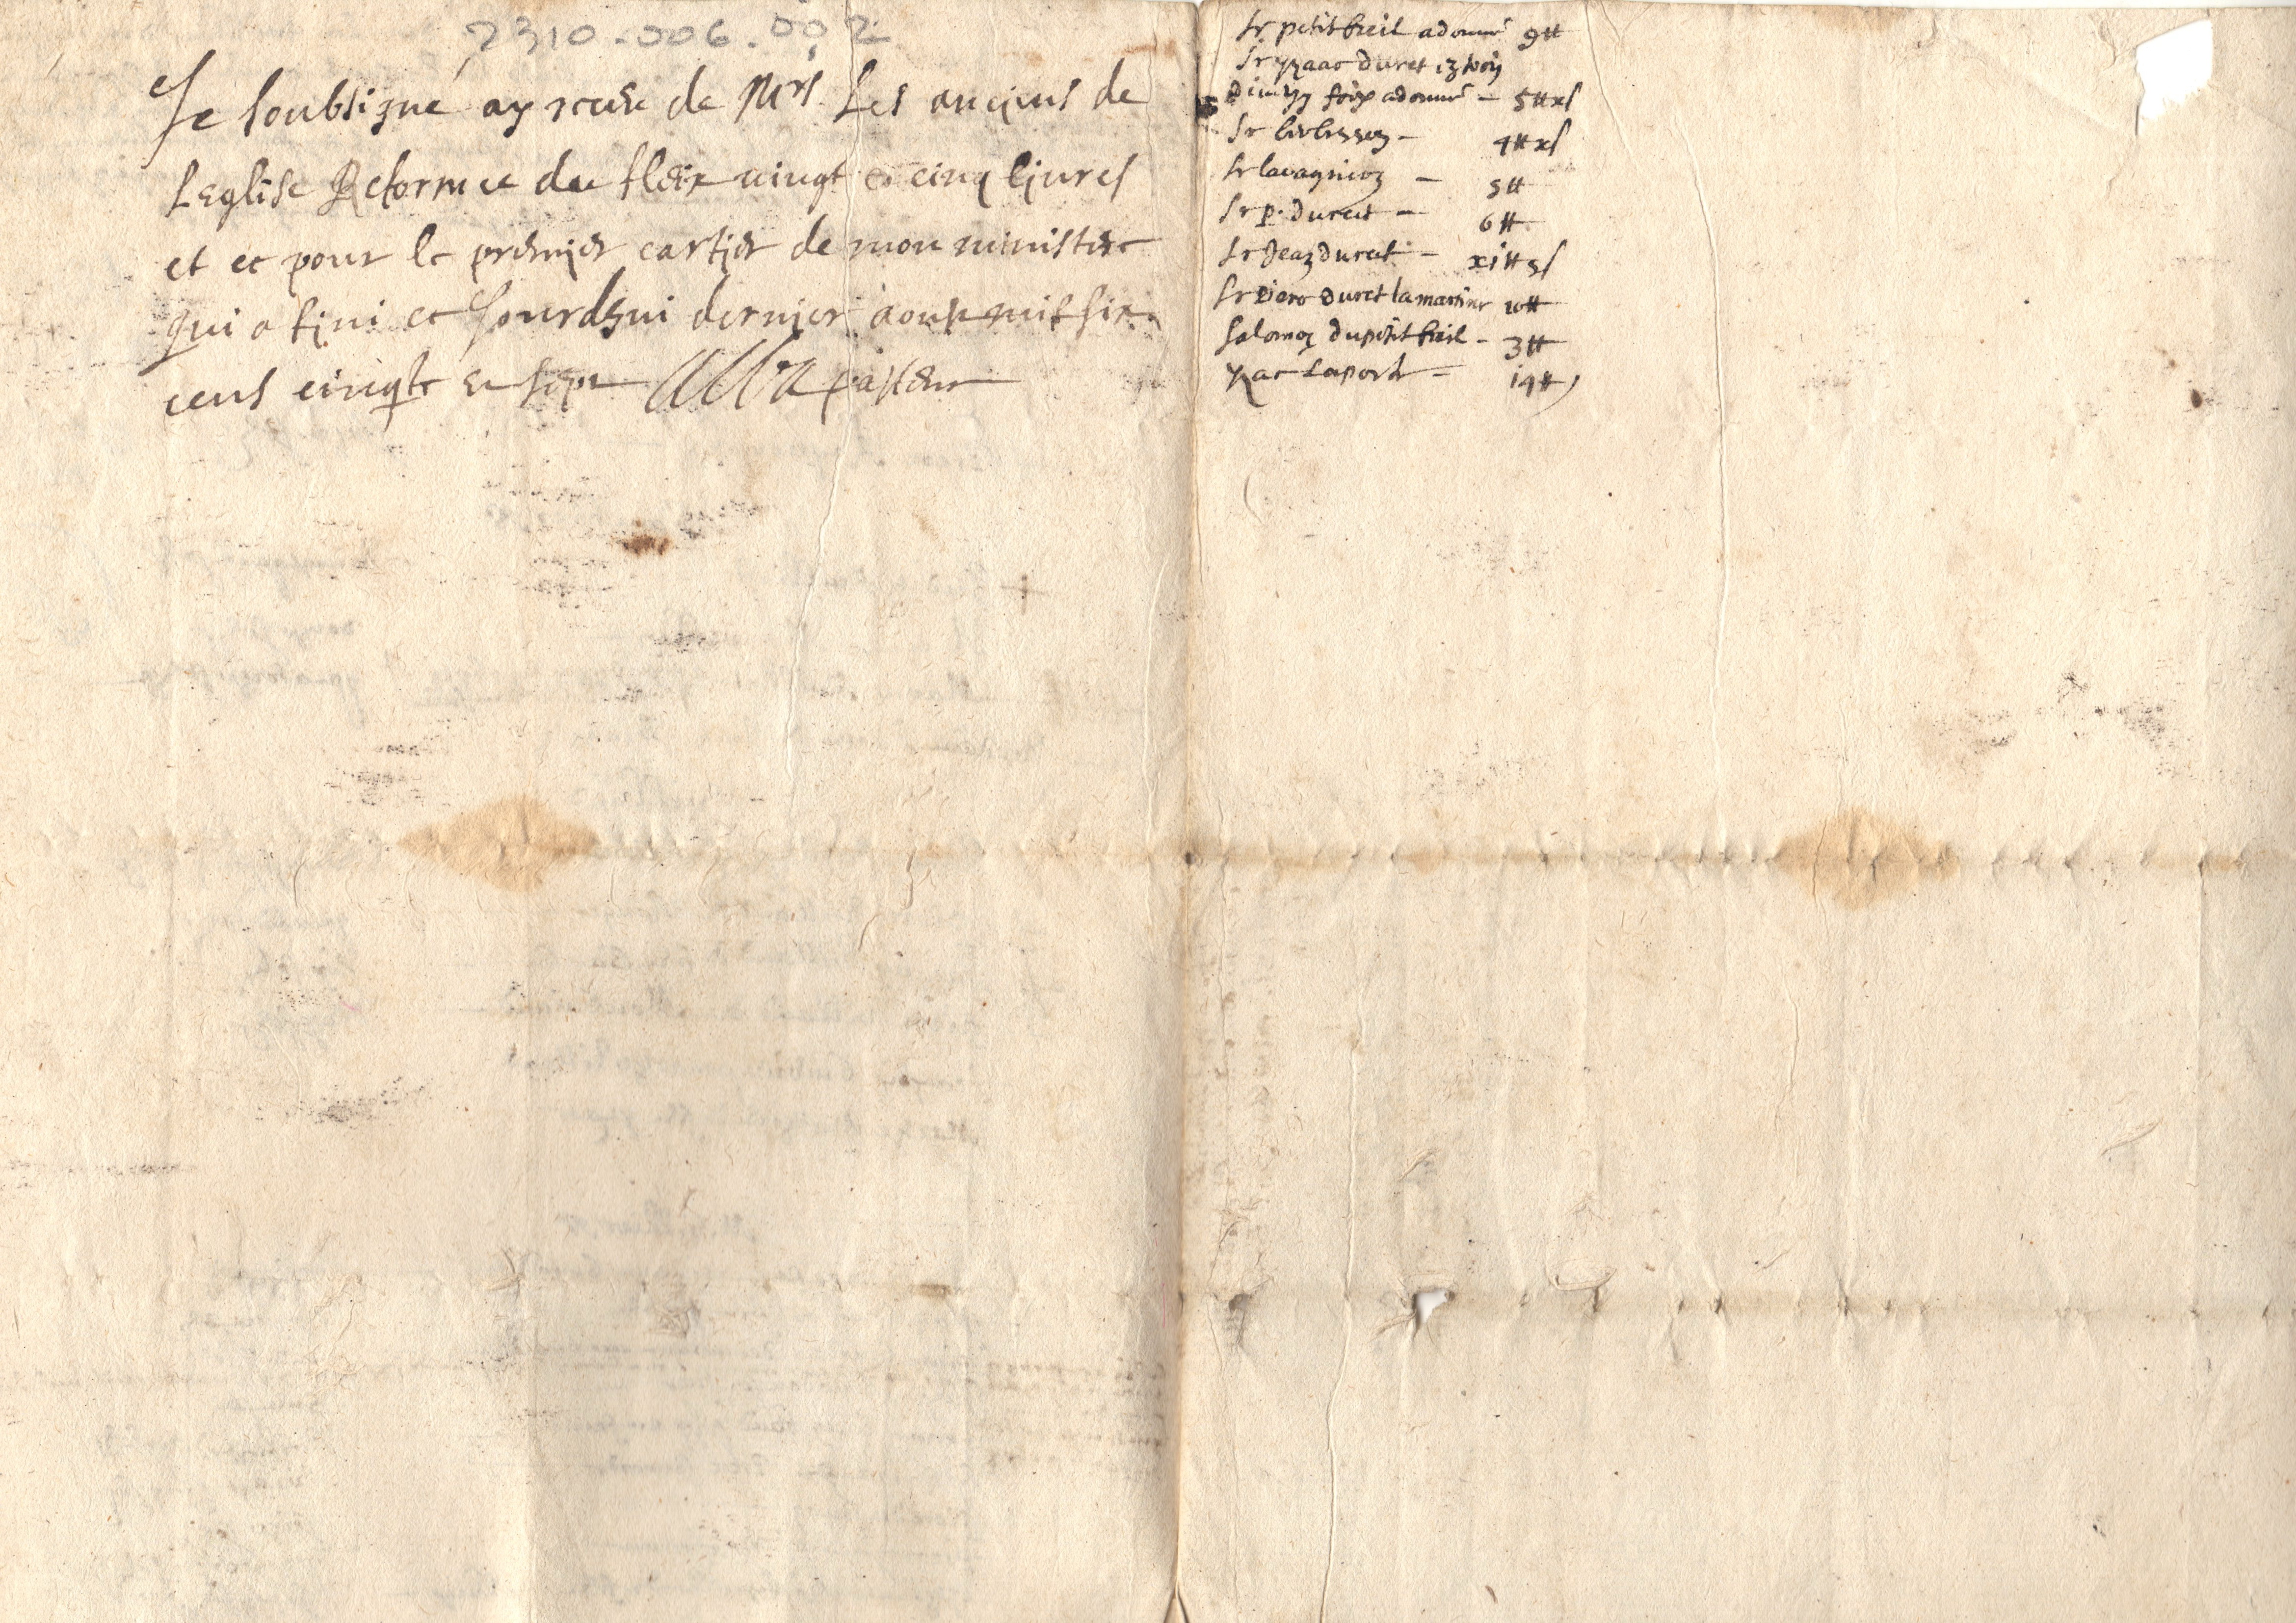 2310-006-002
Je soubsigne ay receu de Mrs Les anciens de
Leglise Reformee du fleix vingt et cinq liures
et ce pour le premier cartier de mon ministere
qui a fini ce Jourdhui dernier aoust mil six
cens cinqte et sept pasteur
Sr petit breil a donné 9tt
Sr yzaac duret
a donné – 5tt xs
Sr – 4tt xs
Sr – 5tt
Sr p. duret – 6tt
Sr Jean duret – xitt 5s
Sr duret lamartine 10tt
Salomon du petit breil – 3tt
yzac Laporte – i9tt